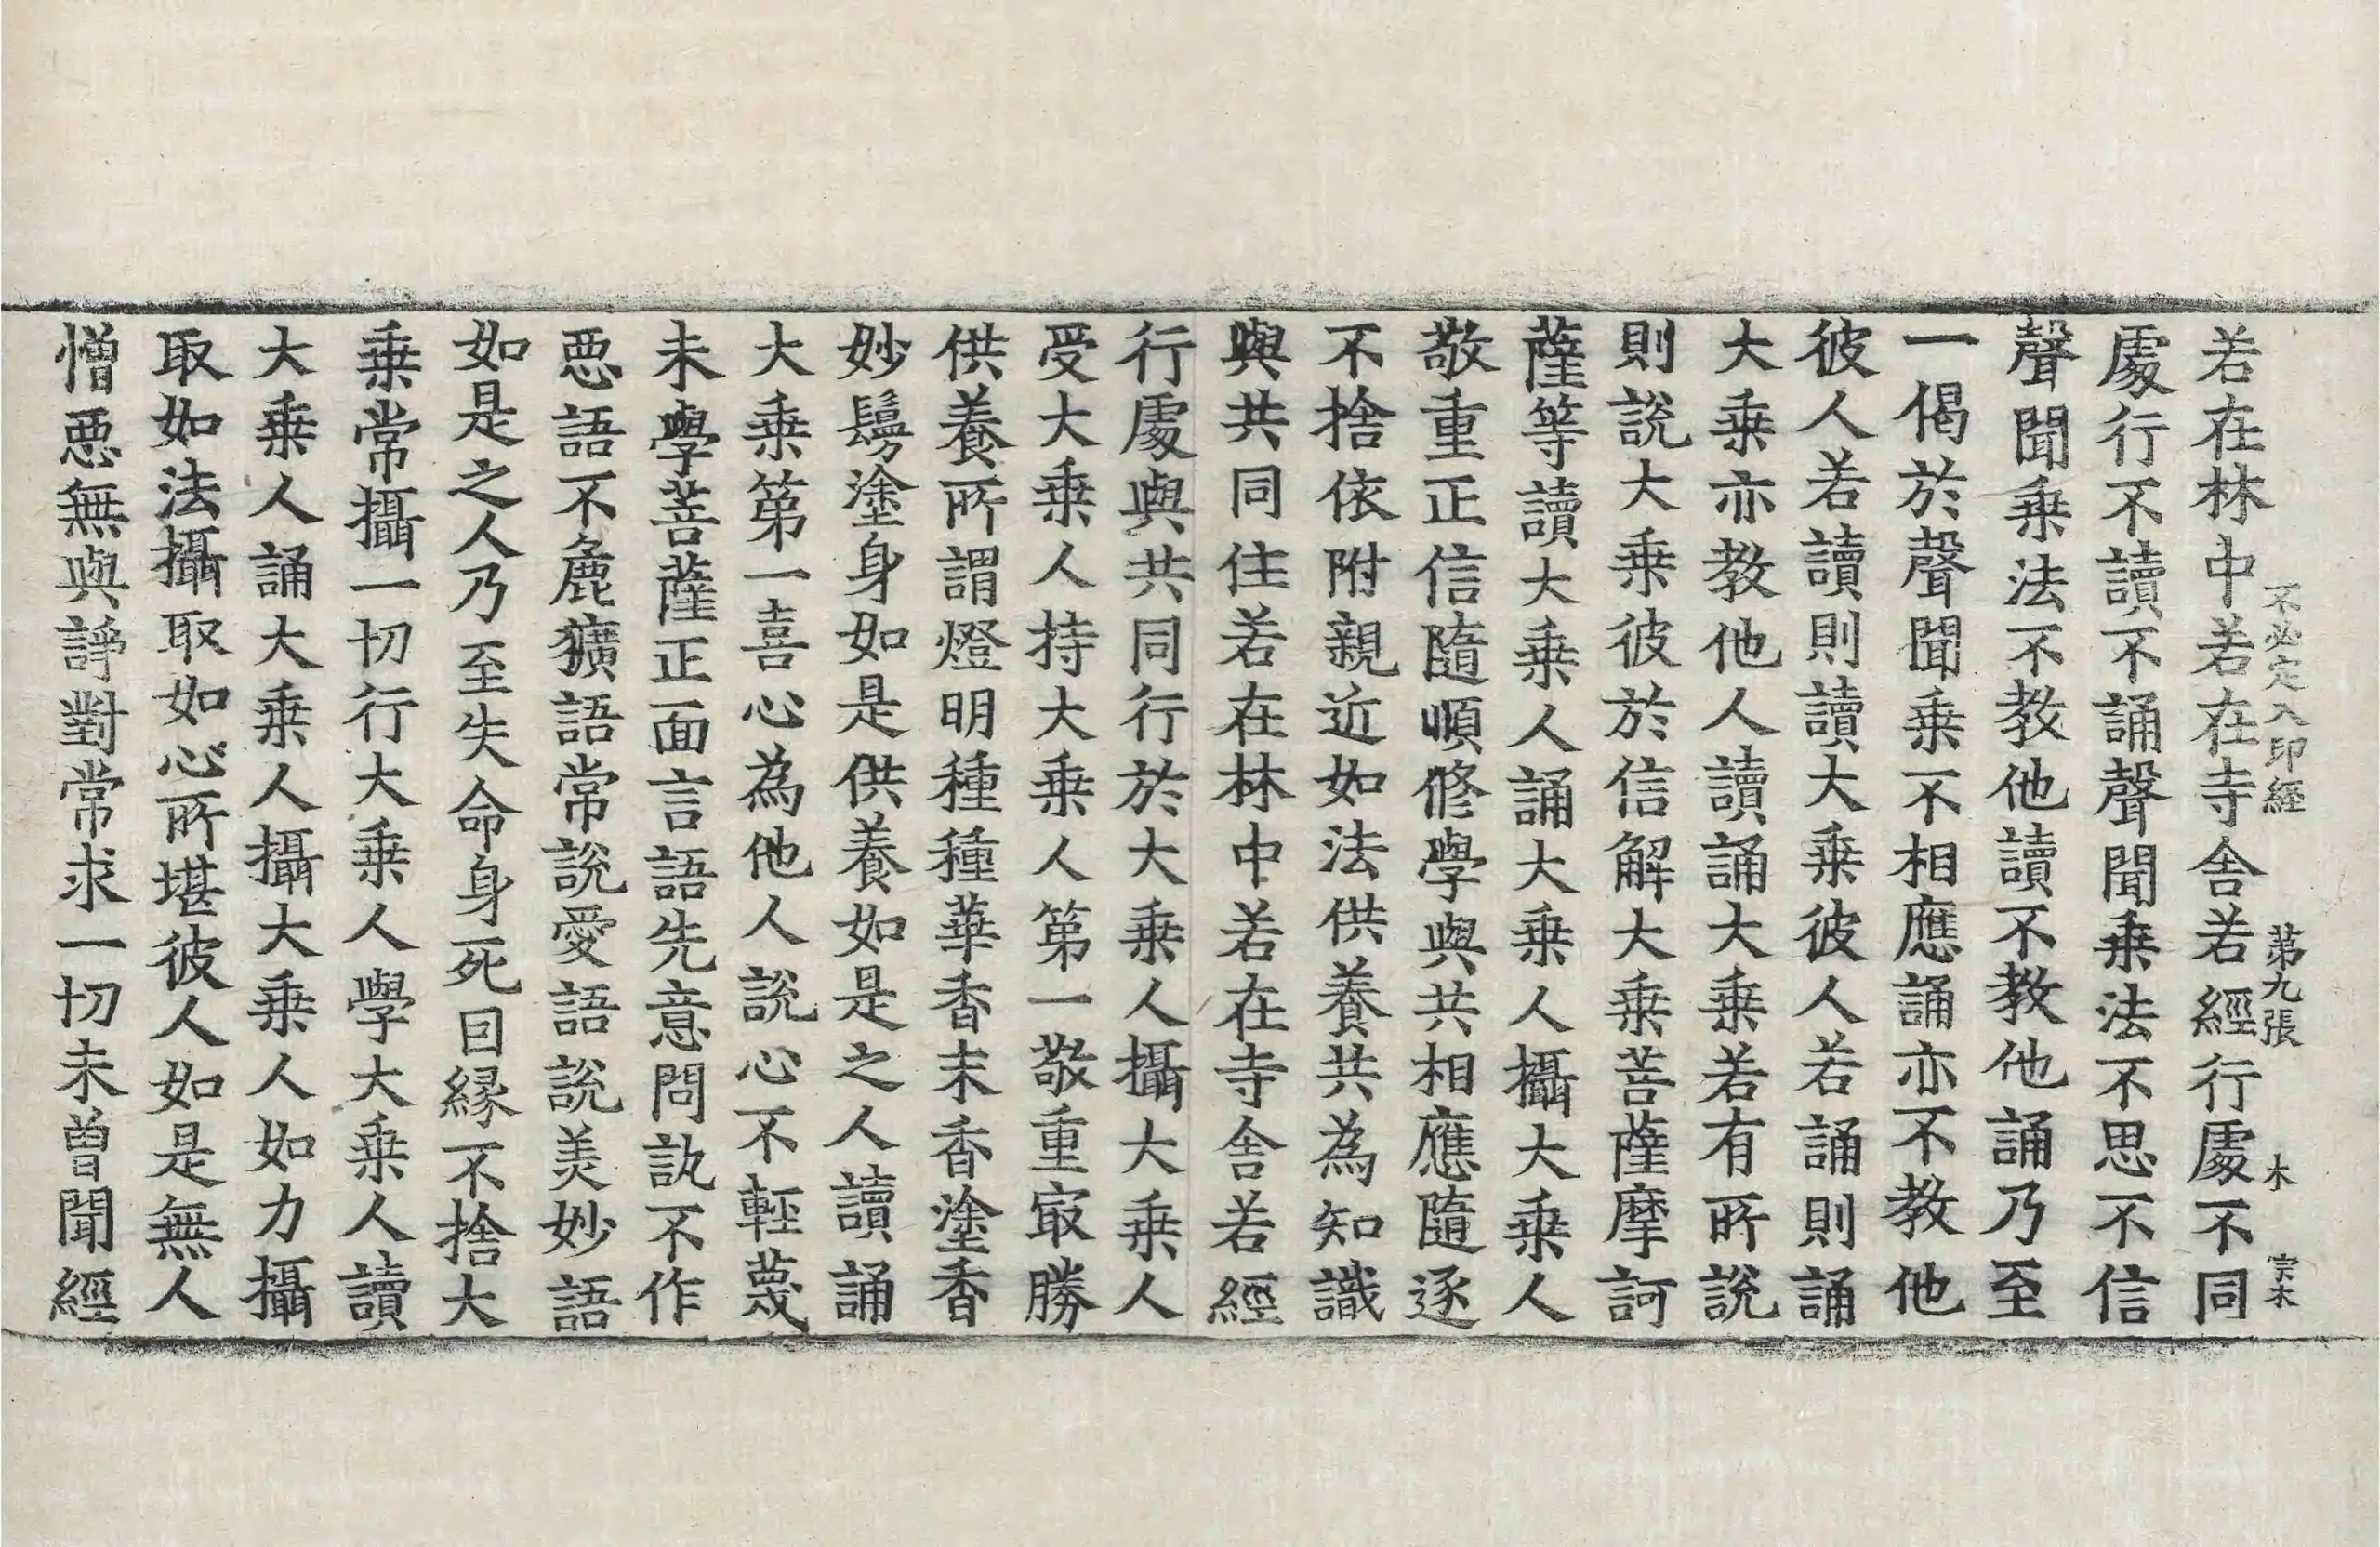 不必定入印經 第九張 木 宗木
若在林中若在寺舍若經行處不同
處行不讀不誦聲聞乗法不思不信
聲聞乗法不教他讀不教他誦乃至
一偈於聲聞乗不相應誦亦不教他
彼人若讀則讀大乗彼人若誦則誦
大乗亦教他人讀誦大乗若有所說
則說大乗彼於信解大乗菩薩摩訶
薩等讀大乗人誦大乗人攝大乗人
敬重正信隨順修學與共相應隨逐
不捨依附親近如法供養共為知識
與共同住若在林中若在寺舍若經
行處與共同行於大乗人攝大乗人
受大乗人持大乗人第一敬重㝡勝
供養所謂燈明種種華香末香塗香
妙鬘塗身如是供養如是之人讀誦
大乗第一喜心為他人說心不輕蔑
未學菩薩正面言語先意問訊不作
惡語不麁獷語常說愛語說美妙語
如是之人乃至失命身死因縁不捨大
乗常攝一切行大乗人學大乗人讀
大乗人誦大乗人攝大乗人如力攝
取如法攝取如心所堪彼人如是無人
憎惡無與諍對常求一切未曽聞經